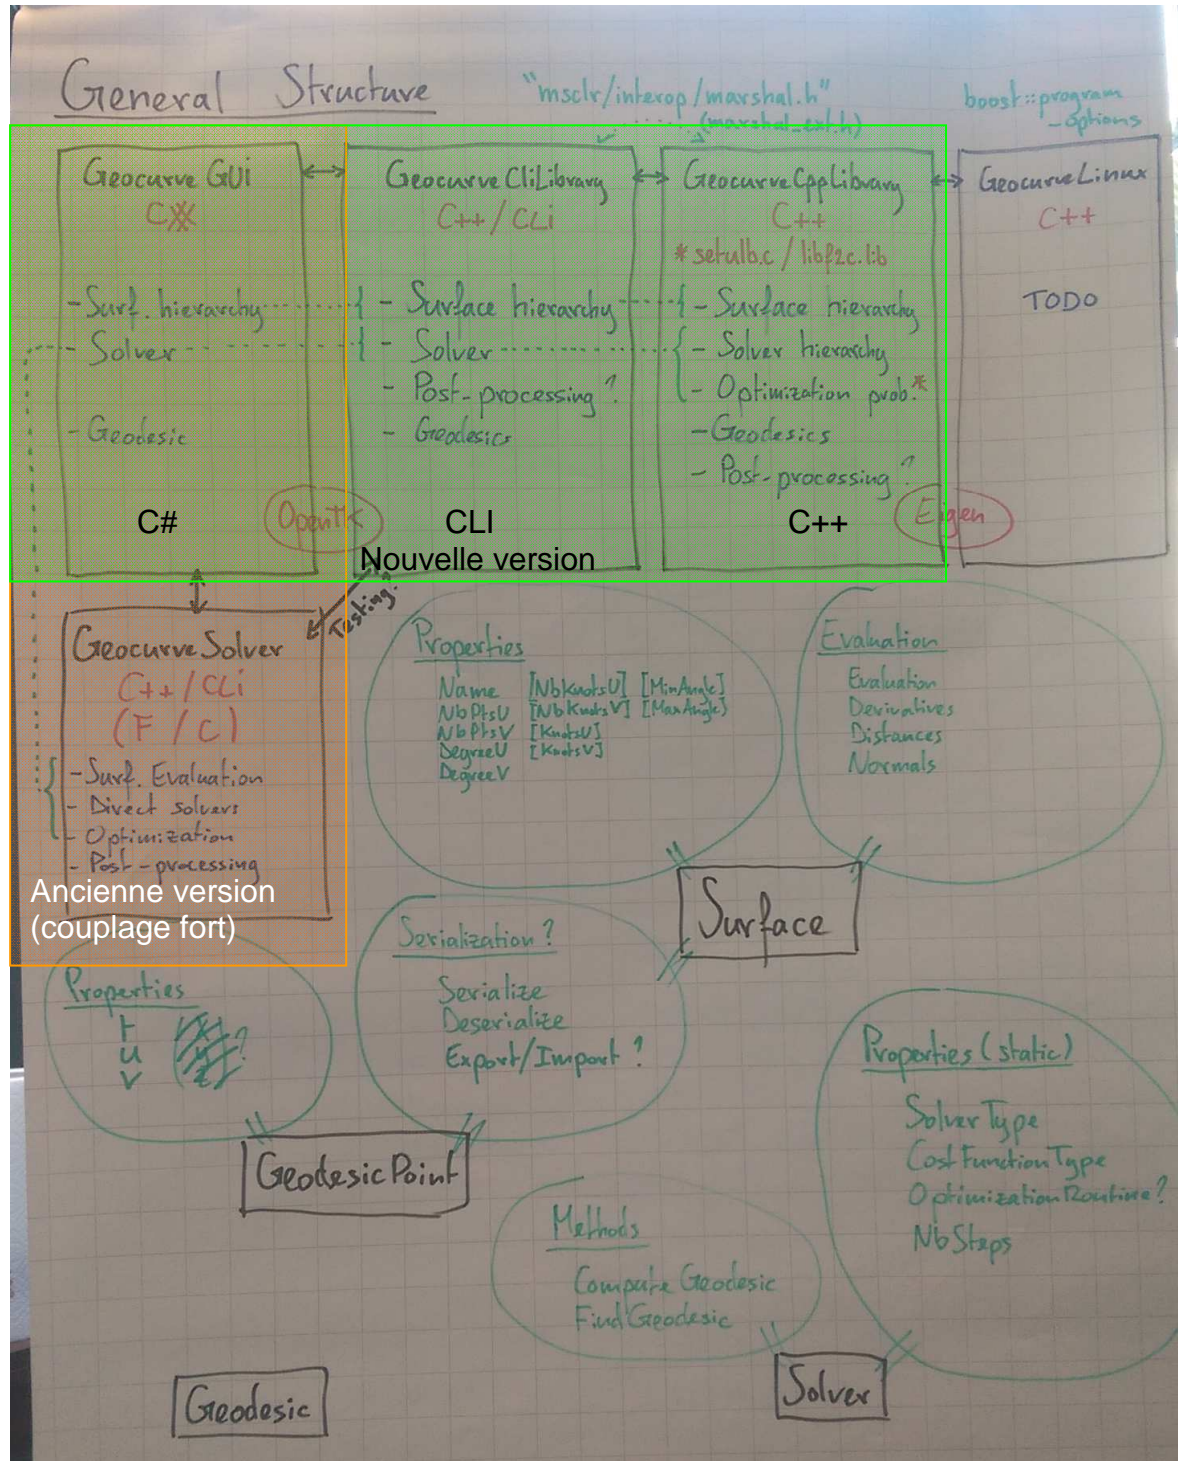 General Structure
"msclr/interop/marshal.h"
(marshal_ext.h)
boost::program
_options
Geocurve GUi
C#
- Surf. hierarchy
- Solver
- Geodesic
C#
OpenTK
GeocurveCliLibrary
C++ / CLi
- Surface hierarchy
- Solver
- Post-processing ?
- Geodesics
CLI
Nouvelle version
GeocurveCppLibrary
C++
* setulb.c / libf2c.lib
- Surface hierarchy
- Solver hierarchy
- Optimization prob.*
- Geodesics
- Post-processing ?
C++
Eigen
GeocurveLinux
C++
TODO
Testing?
GeocurveSolver
C++ / CLi
(F / C)
- Surf. Evaluation
- Direct solvers
- Optimization
- Post-processing
Ancienne version
(couplage fort)
Properties
Name [NbKnotsU] [MinAngle]
NbPtsU [NbKnotsV] [MaxAngle]
NbPtsV [KnotsU]
DegreeU [KnotsV]
DegreeV
Evaluation
Evaluation
Derivatives
Distances
Normals
Surface
Serialization ?
Serialize
Deserialize
Export/Import ?
Properties
t
u ?
v
GeodesicPoint
Properties (static)
SolverType
CostFunctionType
OptimizationRoutine?
NbSteps
Methods
Compute Geodesic
FindGeodesic
Solver
Geodesic